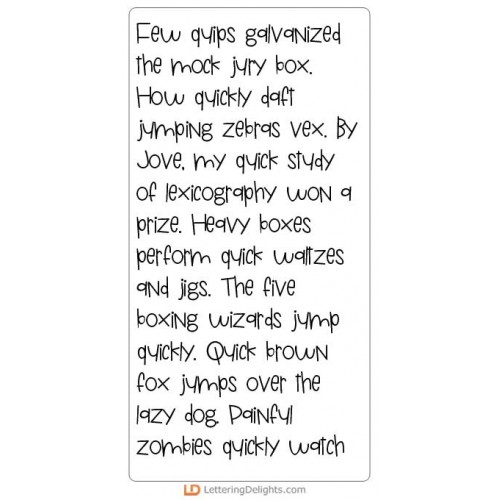 Few quips galvanized
the mock jury box.
How quickly daft
jumping zebras vex. By
Jove, my quick study
of lexicography won a
prize. Heavy boxes
perform quick waltzes
and jigs. The five
boxing wizards jump
quickly. Quick brown
fox jumps over the
lazy dog. Painful
zombies quickly watch
LD LetteringDelights.com